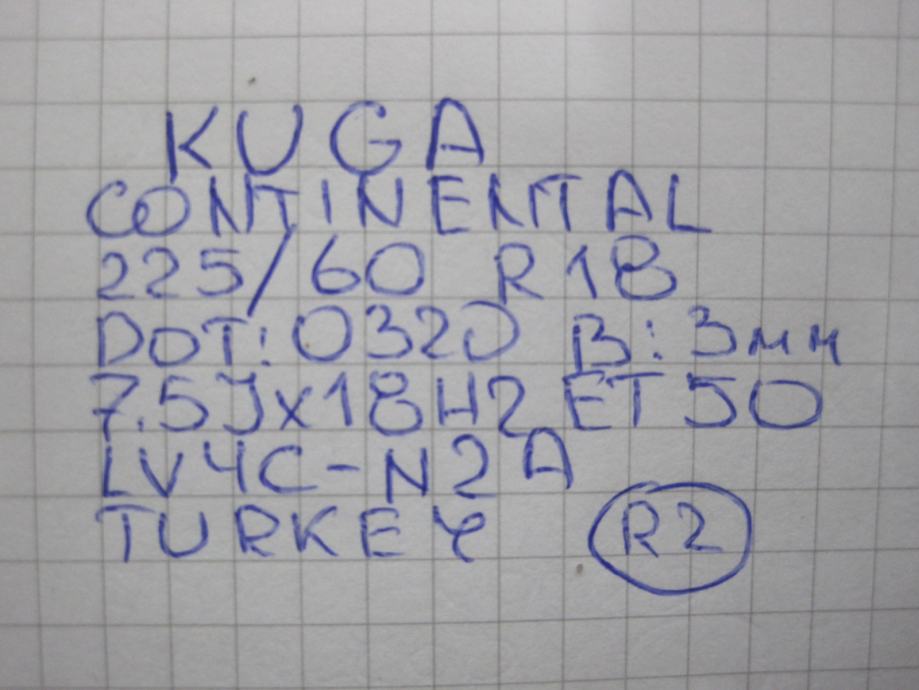 KUGA
CONTINENTAL
225/60 R18
DOT: 0320 B: 3мм
7.5Jx18H2 ET50
LV4C-N2A
TURKEY R2